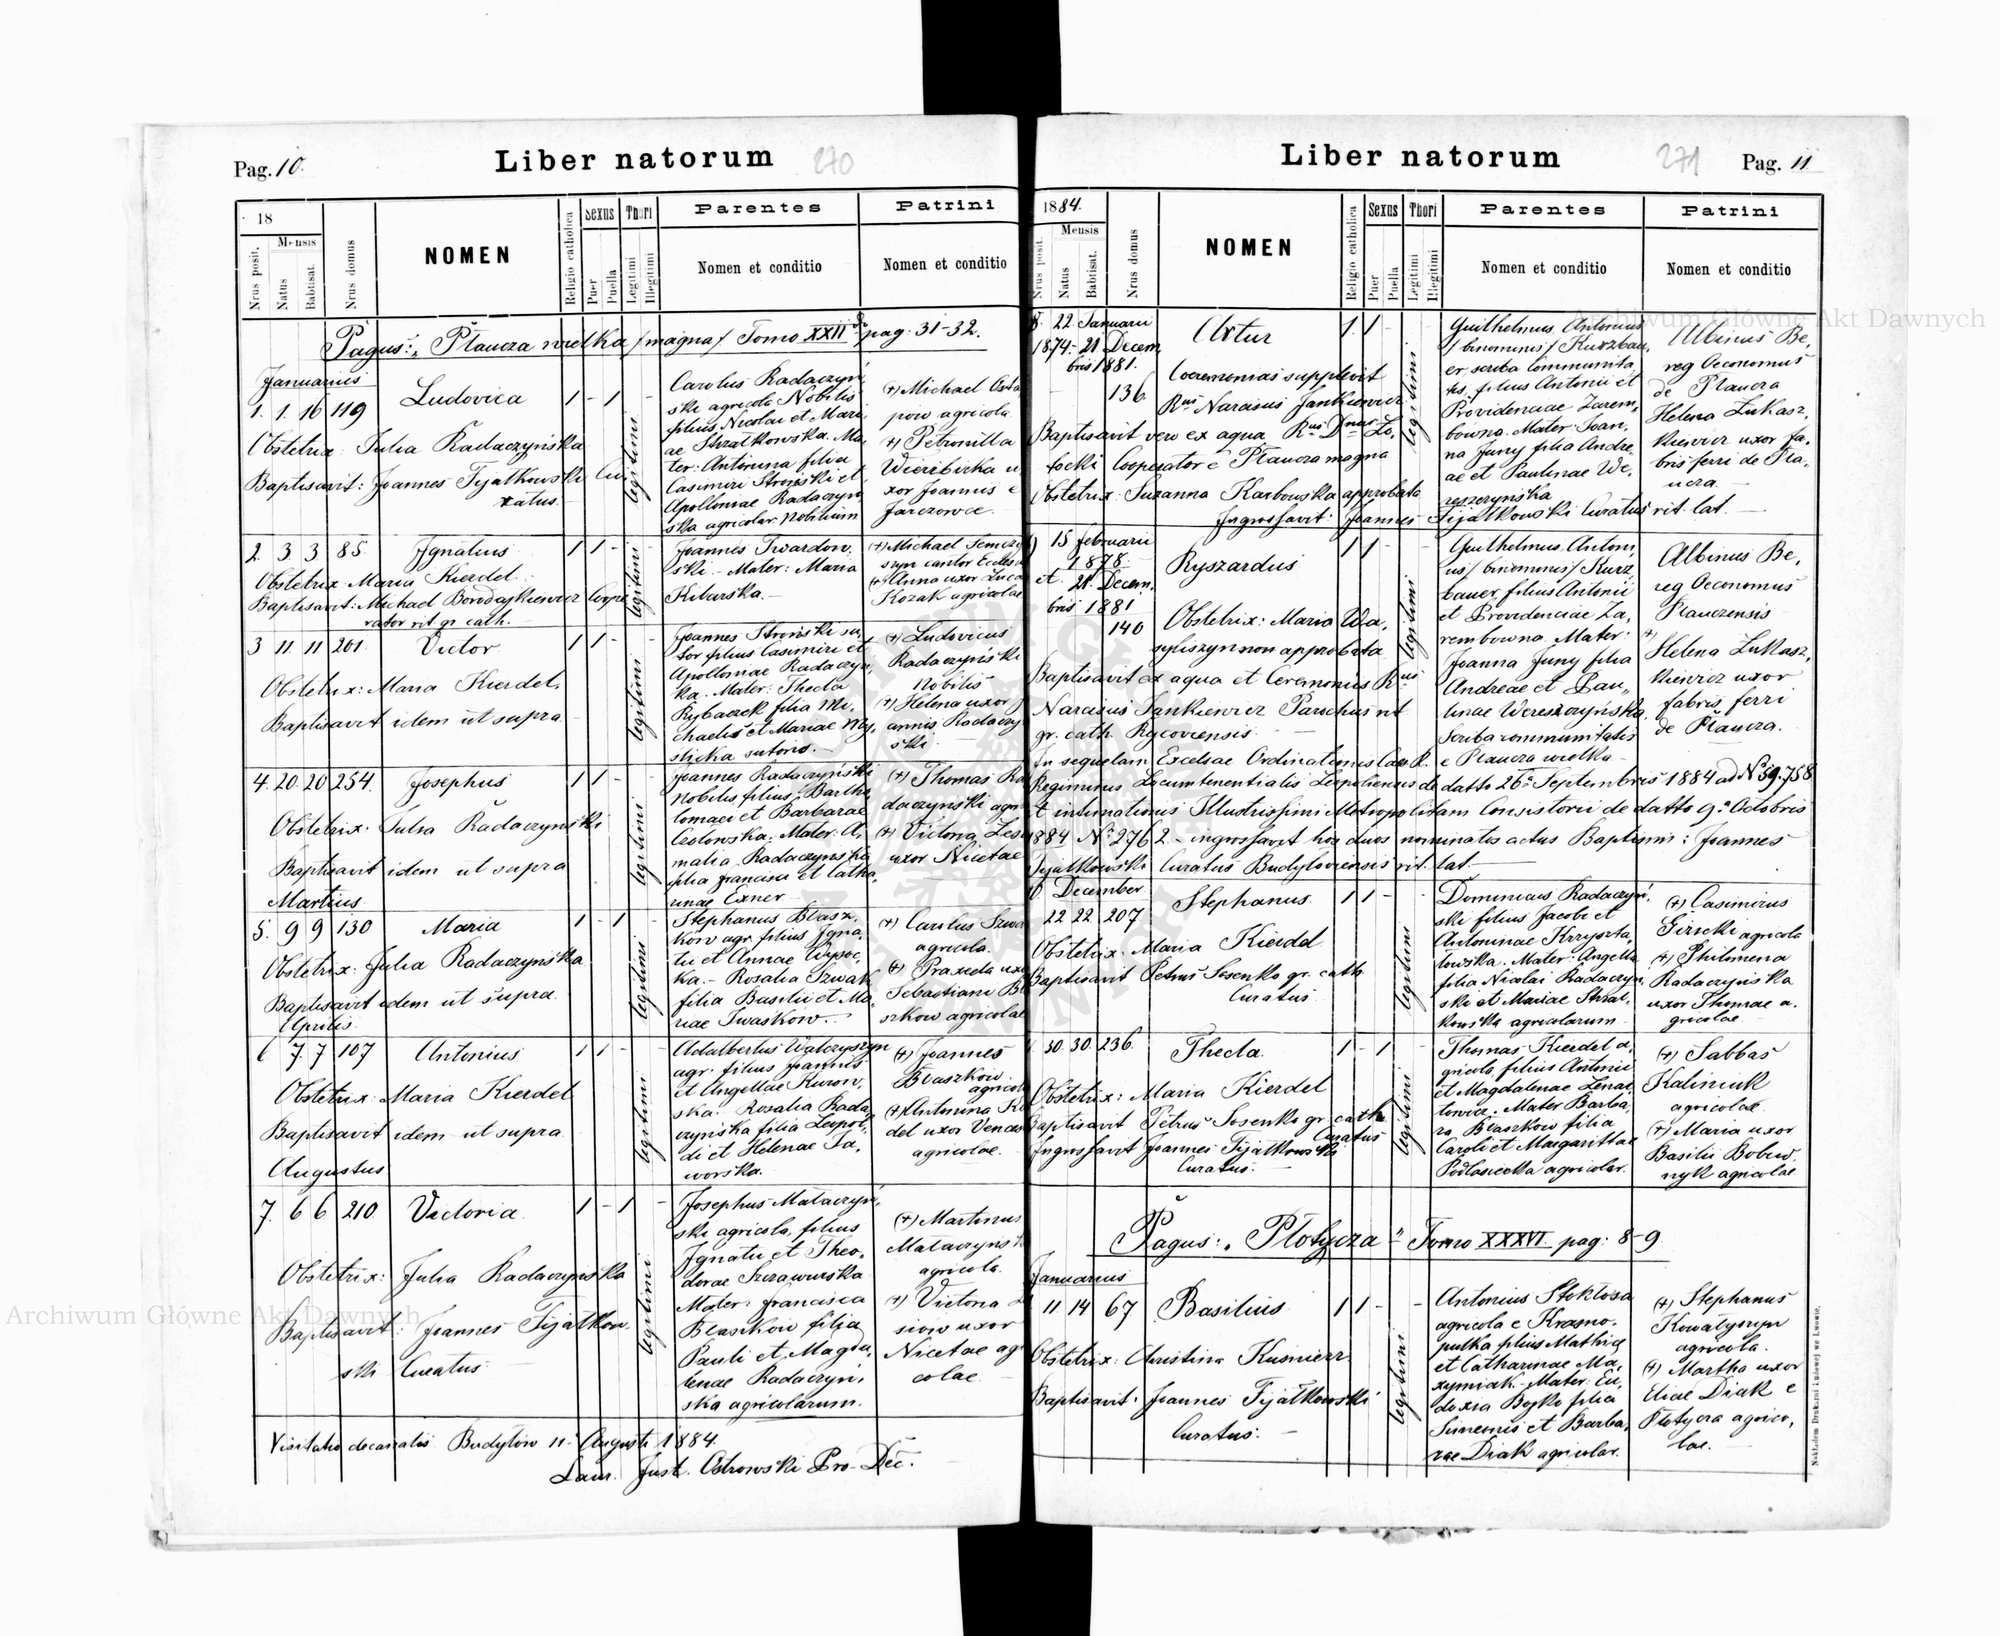 Pag. 10.
Liber natorum
270
18
Nrus posit.
Mensis
Natus
Babtisat.
Nrus domus
NOMEN
Religio catholica
Sexus
Puer
Puella
Thori
Legitimi
Illegitimi
Parentes
Nomen et conditio
Patrini
Nomen et conditio
Pagus: „Płaucza wielka /magna/ Tomo XXII pag. 31-32.
Januarius
1. 1. 16 119 Ludovica 1 - 1
Obstetrix: Julia Radaczyńska
Baptisavit: Joannes Fijałkowski Cu-
ratus.
legitimi
Carolus Radaczyń-
ski agricola Nobilis
filius Nicolai et Mari-
ae Strzałkowska. Ma-
ter: Antonina filia
Casimiri Stroński et
Apolloniae Radaczyń-
ska agricolar. Nobilium
(+) Michael
pow agricola
(+) Petronilla
Wierzbicka u
xor Joannis e
Jarczowce.
2. 3 3 85. Ignatius 1 1 -
Obstetrix Maria Kierdel.
Baptisavit: Michael Borodajkiewicz Coope
rator rit. gr. cath.
legitimi
Joannes Twardow-
ski. - Mater: Maria
(+) Michael
szyn cantor
(+) Anna uxor
Kozak agricolae
3 11. 11 201. Victor 1 1 -
Obstetrix: Maria Kierdel
Baptisavit idem ut supra
legitimi
Joannes Stroński su-
tor filius Casimiri et
Apolloniae Radaczyń-
ka. Mater: Thecla
Rybaczek filia Mi-
chaelis et Mariae My-
slicka sutoris. -
(+) Ludovicus
Radaczyński
Nobilis
(+) Helena uxor J
annis Radaczy
ski
4. 20. 20 254. Josephus 1 1 -
Obstetrix: Julia Radaczyński
Baptisavit idem ut supra
legitimi
Joannes Radaczyński
Nobilis filius Bartho
lomaei et Barbarae
Mater: A-
malia Radaczyńska
filia Francisci et Catha-
rinae Exner
(+) Thomas Ra
daczynski agri
(+) Victoria
uxor Nicetae
Martius
5. 9 9 130 Maria 1 - 1
Obstetrix: Julia Radaczyńska
Baptisavit idem ut supra.
legitimi
Stephanus Błasz-
kow agr. filius Igna-
tii et Annae Wysoc-
ka. - Rosalia Szwak
filia Basilii et Ma-
riae Iwaskow. -
(+) Carolus
agricola.
(+) Praxeda uxo
Sebastiani Bł
szkow agricolae
Aprilis
6 7. 7 107 Antonius 1 1 -
Obstetrix: Maria Kierdel
Baptisavit idem ut supra
legitimi
Adalbertus Walczyszyn
agr. filius Joannis
et Angellae Kurow-
ska. Rosalia Rada-
czyńska filia Leopol-
di et Helenae Ja-
worska.
(+) Joannes
Błaszkow
agricola
(+) Antonina Ki
del uxor Vences
agricolae.
Augustus
7. 6 6 210. Victoria. 1 - 1 -
Obstetrix: Julia Radaczyńska
Baptisavit: Joannes Fijałkow-
ski Curatus
legitimi
Josephus Mataczyń-
ski agricola, filius
Ignatii et Theo-
dorae Szczawurska
Mater: Francisca
Błaszkow filia
Pauli et Magda-
lenae Radaczyń-
ska agricolarum.
(+) Martinus
Mataczyńsk
agricola.
(+) Victoria
siow uxor
Nicetae agri
colae
Visitatio decanalis Budyłów 11. Augusti 1884.
Laur. Just. Ostrowski Pro-Dec.
Liber natorum
271
Pag. 11
1884.
Nrus posit.
Mensis
Natus
Babtisat.
Nrus domus
NOMEN
Religio catholica
Sexus
Puer
Puella
Thori
Legitimi
Illegitimi
Parentes
Nomen et conditio
Patrini
Nomen et conditio
8. 22. Januarii
1874 - 21 Decem
bris 1881.
136
Artur 1. 1 -
Coeremonias supplevit
Rus Narcisus Jankiewicz
Baptisavit vero ex aqua Rus Dnus Zo-
tocki Cooperator e Płaucza magna
Obstetrix: Suzanna Karbowska approbata
Ingrossavit: Joannes Fijałkowski Curatus rit. lat.
legitimi
Guilhelmus Antonius
/binominis/ Kurzbau-
er scriba Communita-
tis, filius Antonii et
Providenciae Zarem-
bowna. Mater: Joan-
na Juny filia Andre-
ae et Paulinae We-
reszczyńska
Albinus Be-
reg Oeconomus
de Płaucza
Helena Łukasz-
kiewicz uxor fa-
bris ferri de Pła-
ucza.
9 15 februarii
1878
et 21 Decem-
bris 1881
140
Ryszardus 1 1 -
Obstetrix: Maria Wa-
syliszyn non approbata
Baptisavit ex aqua et Ceremoniis Rus
Narcisus Jankiewicz Parochus rit
gr. cath. Byczoviensis
legitimi
Guilhelmus Anton-
ius /binominis/ Kurz-
bauer, filius Antonii
et Providenciae Za-
rembowna. Mater:
Joanna Juny filia
Andreae et Pau-
linae Wereszczyńska.
Scriba communitatis
e Płaucza wielka
Albinus Be-
reg Oeconomus
Płauczensis
(+)
Helena Łukasz-
kiewicz uxor
fabris ferri
de Płaucza.
In sequelam Excelsae Ordinationis Caes. R.
Regiminis Locumtenentialis Leopoliensis de datto 26a Septembris 1884 ad No 59.758
et intimationis Illustrissimi Metropolitani Consistorii de datto 9a Octobris
1884 No 2762 - ingrossavit hos duos nominatos actus Baptismi: Joannes
Fijałkowski Curatus Budyloviensis rit. lat.
December
22 22 207 Stephanus 1 1 -
Obstetrix: Maria Kierdel
Baptisavit Petrus Sosenko gr. cath
Curatus
legitimi
Dominicus Radaczyń-
ski filius Jacobi et
Antoninae Krzyszta-
łowska. Mater: Angella
filia Nicolai Radaczyń-
ski et Mariae Strzał-
kowska agricolarum
(+) Casimirus
Girecki agricola
(+) Philomena
Radaczyńska
uxor Thomae a-
gricolae
30. 30. 236. Thecla. 1 - 1
Obstetrix: Maria Kierdel
Baptisavit Petrus Sosenko gr. cath.
Curatus
Ingrossavit Joannes Fijałkowski
Curatus. -
legitimi
Thomas Kierdel a-
gricola, filius Antonii
et Magdalenae Lenar-
towicz. Mater Barba-
ra Błaszkow filia
Caroli et Margarittae
Podlasiecka agricolar.
(+) Sabbas
Kaliniuk
agricolae
(+) Maria uxor
Basilii Bobiw-
nyk agricolae
Pagus: „Płotycza" Tomo XXXVI pag: 8-9.
Januarius
11 14 67 Basilius 1 1 - -
Obstetrix: Christina Kusnierz
Baptisavit: Joannes Fijałkowski
Curatus. -
legitimi
Antonius Stokłosa
agricola e Krasno-
pulka filius Mathiae
et Catharinae Ma-
xymiak - Mater: Eu-
doxia Bojko filia
Simeonis et Barba-
rae Diak agricolar.
(+) Stephanus
Kowałyszyn
agricola.
(+) Martha uxor
Eliae Diak e
Płotycza agrico-
lae. -
Nakładem Drukarni Ludowej we Lwowie.
Archiwum Główne Akt Dawnych
Archiwum Główne Akt Dawnych